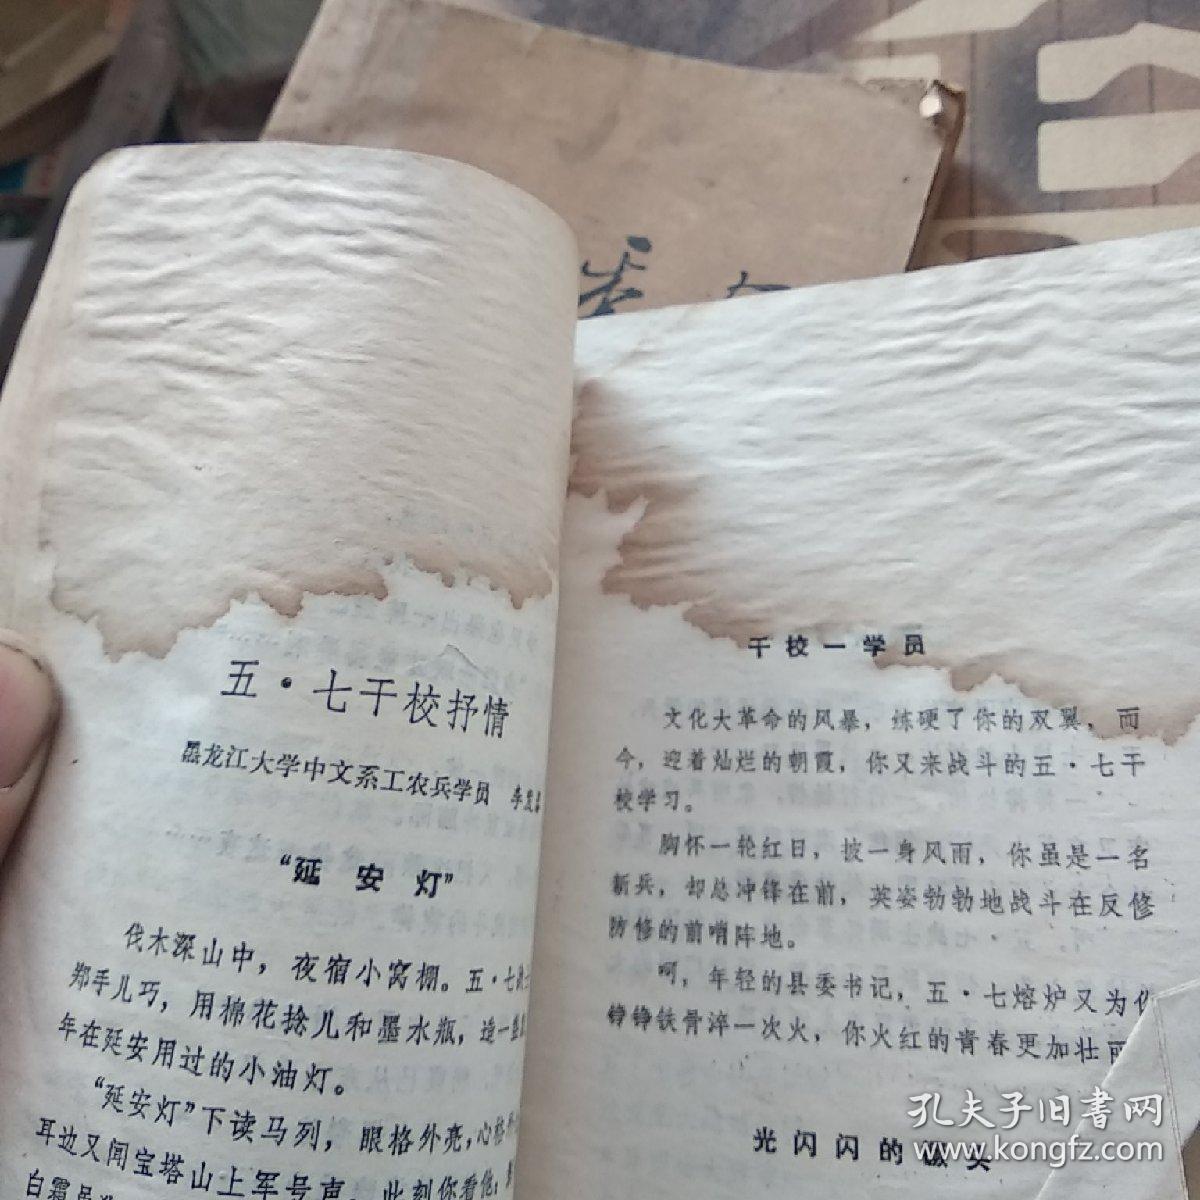 五·七干校抒情
黑龙江大学中文系工农兵学员 李
“延安灯”
伐木深山中，夜宿小窝棚。五·七
郑手儿巧，用棉花捻儿和墨水瓶，造一
年在延安用过的小油灯。
“延安灯”下读马列，眼格外亮，心格
耳边又闻宝塔山上军号声。此刻你看他，
白霜
干校一学员
文化大革命的风暴，练硬了你的双翼，而
今，迎着灿烂的朝霞，你又来战斗的五·七干
校学习。
胸怀一轮红日，披一身风雨，你虽是一名
新兵，却总冲锋在前，英姿勃勃地战斗在反修
防修的前哨阵地。
呵，年轻的县委书记，五·七熔炉又为你
铮铮铁骨淬一次火，你火红的青春更加壮丽
光闪闪的
孔夫子旧书网
www.kongfz.com